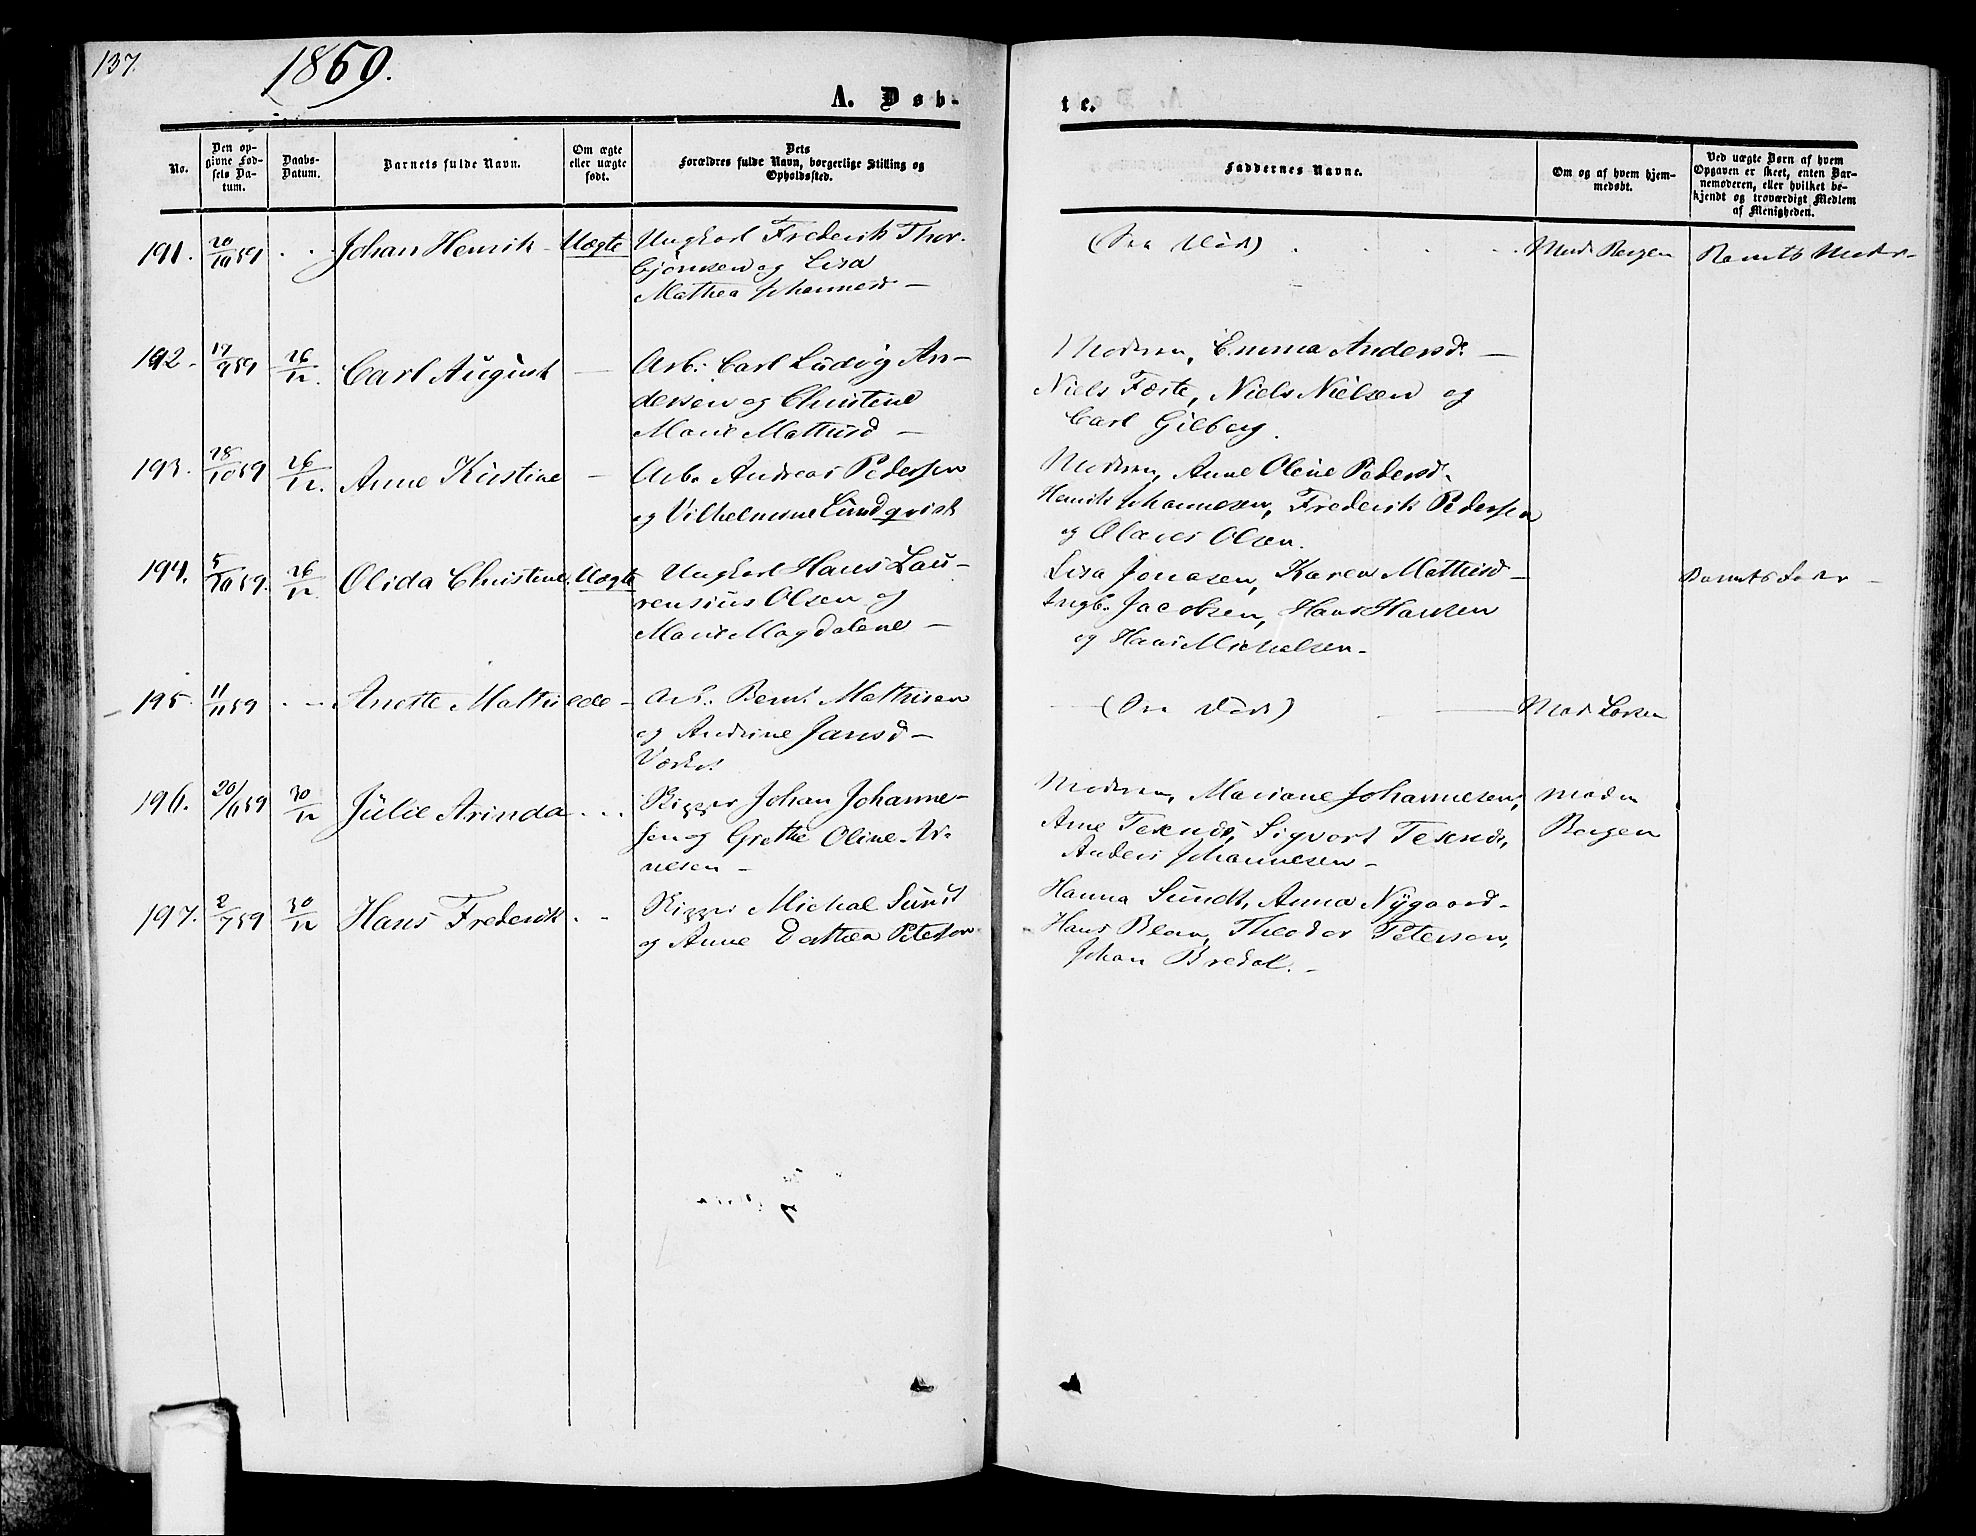 137.
1859.
A. Døb-
te.
No.
Den op-
givne Fød-
sels Da-
tum.
Daabs-
Datum.
Barnets fulde Navn.
Om ægte
eller uægte
født.
Dets
Forældres fulde Navn, borgerlige Stilling og
Opholdssted.
Faddernes Navne.
Om og af hvem hjem-
medøbt.
Ved uægte Børn af hvem
Opgaven er skeet, enten Bar-
nemoderen, eller hvilket be-
kjendt og troværdigt Medlem
af Menigheden.
191. 20/10 59 Johan Henrik Uægte Ungkarl Frederik Thor-
bjørnsen og Lisa
Mathea Johannesd
Mad. Bergen Barnets Moder
192. 17/9 59 26/12. Carl August Arb: Carl Ludvig An-
dersen og Christine
Marie Mathisd
Modren, Emma Andersd.
Niels Færte, Niels Nielsen og
Carl Gilberg.
193. 28/10 59 26/12. Anne Kirstine Arb. Andreas Pedersen
og Vilhelmine Lundqvist
Modren, Anne Oline Pedersd.
Henrik Johannesen, Frederik Pedersen
og Olaves Olsen.
194. 5/10 59. 26/12 Olida Christine. Uægte Ungkarl Hans Lau-
rensius Olsen og
Marie Magdalene
Lisa Jonasen, Karen Mathisd
Ingb. Jacobsen, Hans Hansen
og Hans Michelsen.
Barnets Fader
195. 11/11 59 Anette Mathilde Arb. Bernt Mathisen
og Andrine Jansd
Værket
Mad. Larsen
196. 20/11 59 30/12 Julie Arinda Rigger Johan Johanne-
sen og Grethe Oline Ar-
nesen
Modren, Mariane Johannesen,
Arne Texnes, Sigvart Texnes,
Anders Johannesen
Madm
Bergen
197. 2/7 59 30/12 Hans Frederik Rigger Michal Sundt
og Anne Dorthea Peterson
Hanna Sundt, Anna Nygaard
Hans Blom, Theodor Peterson,
Johan Bredal.